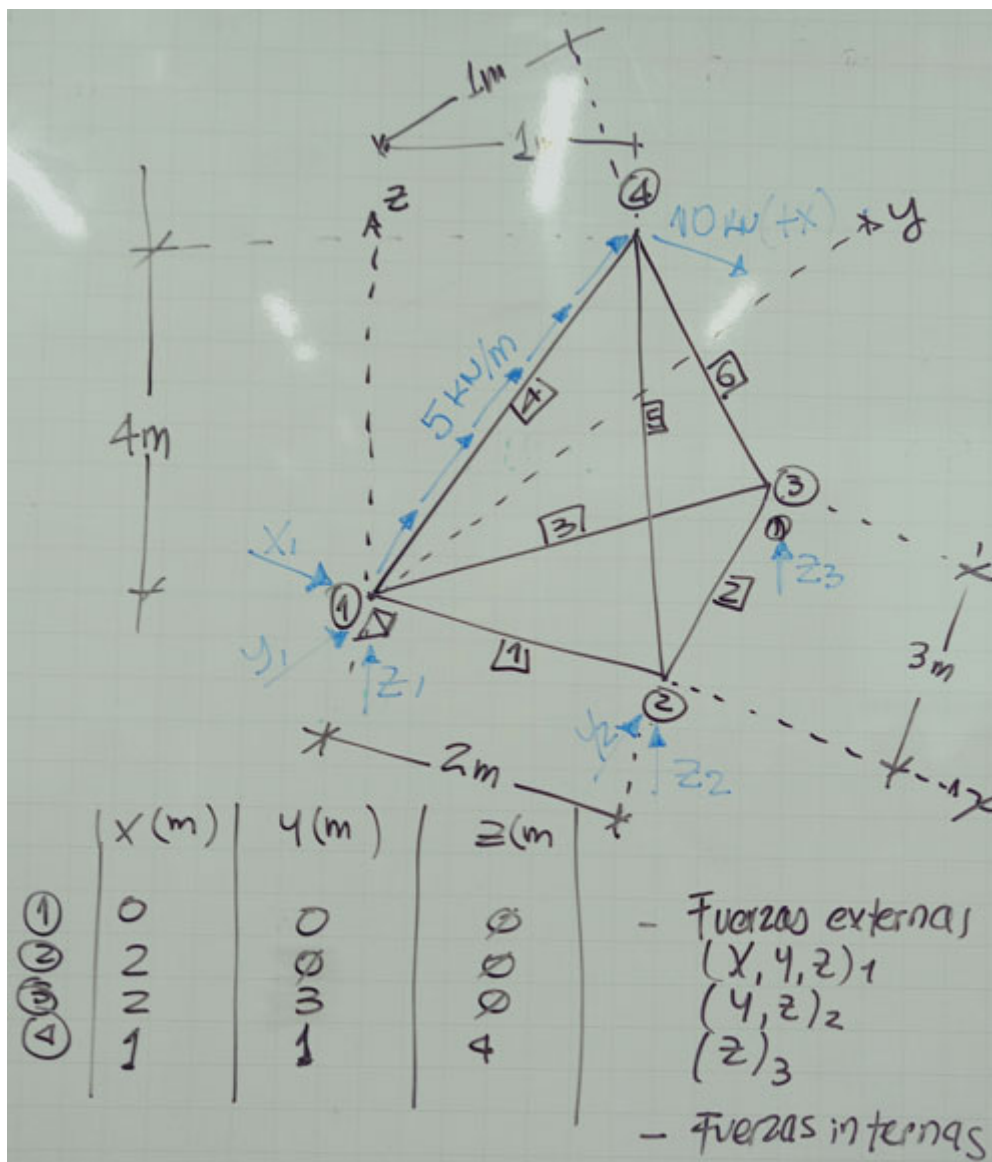 1m
1m
z
4
10 kN (+x)
y
5 kN/m
4
5
6
4m
3
3
z3
x1
1
y1
z1
1
2
2
y2
z2
3m
2m
x
x (m) y (m) z (m
1 0 0 0
2 2 0 0
3 2 3 0
4 1 1 4
- Fuerzas externas
(x, y, z)1
(y, z)2
(z)3
- Fuerzas internas